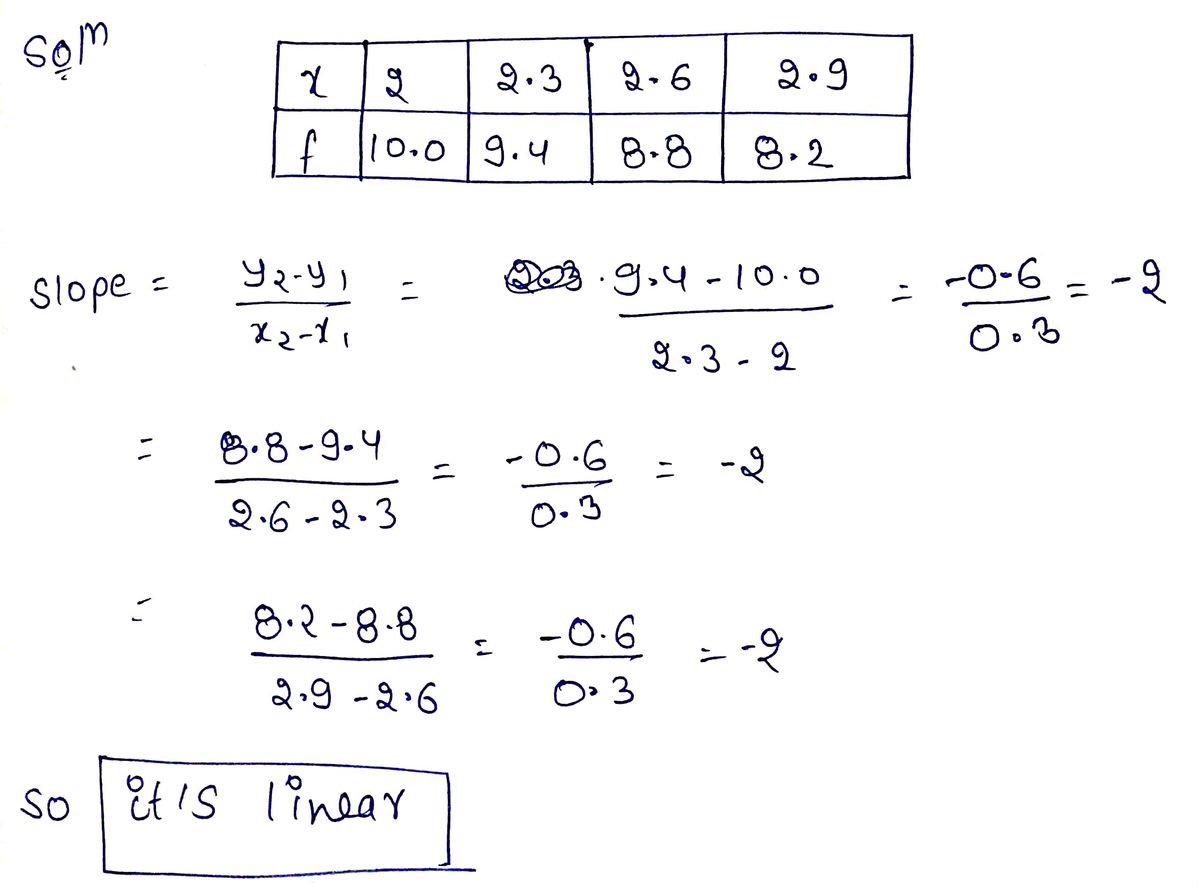 Soln
x 2 2.3 2.6 2.9
f 10.0 9.4 8.8 8.2
Slope = y2-y1 / x2-x1 = 9.4-10.0 / 2.3-2 = -0.6 / 0.3 = -2
= 8.8-9.4 / 2.6-2.3 = -0.6 / 0.3 = -2
= 8.2-8.8 / 2.9-2.6 = -0.6 / 0.3 = -2
so it is linear